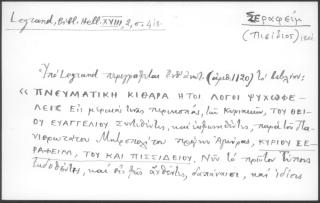 Legrand, Bibl. Hell. XVIII, 2, σ. 418.
Σεραφείμ
(Πισίδιος)
Ὑπὸ Legrand περιγράφεται ἐνθάδε (ἀριθ. 1120) τὸ βιβλίον:
« ΠΝΕΥΜΑΤΙΚΗ ΚΙΘΑΡΑ ΗΤΟΙ ΛΟΓΟΙ ΨΥΧΩΦΕ-
ΛΕΙΣ Εἰς μερικάς τινας περικοπάς, τῶν Κυριακῶν, ΤΟΥ ΘΕΙ-
ΟΥ ΕΥΑΓΓΕΛΙΟΥ Συντεθέντες, καὶ ἐκφωνηθέντες, παρὰ τοῦ Πα-
νιερωτάτου Μητροπολίτου πρώην Ἀγκύρας, ΚΥΡΙΟΥ ΣΕ-
ΡΑΦΕΙΜ, ΤΟΥ ΚΑΙ ΠΙΣΣΙΔΕΙΟΥ. Νῦν τὸ πρῶτον τύποις
ἐκδοθέντες, καὶ εἰς φῶς ἀχθέντες, δαπάνῃ, καὶ ἰδίοις